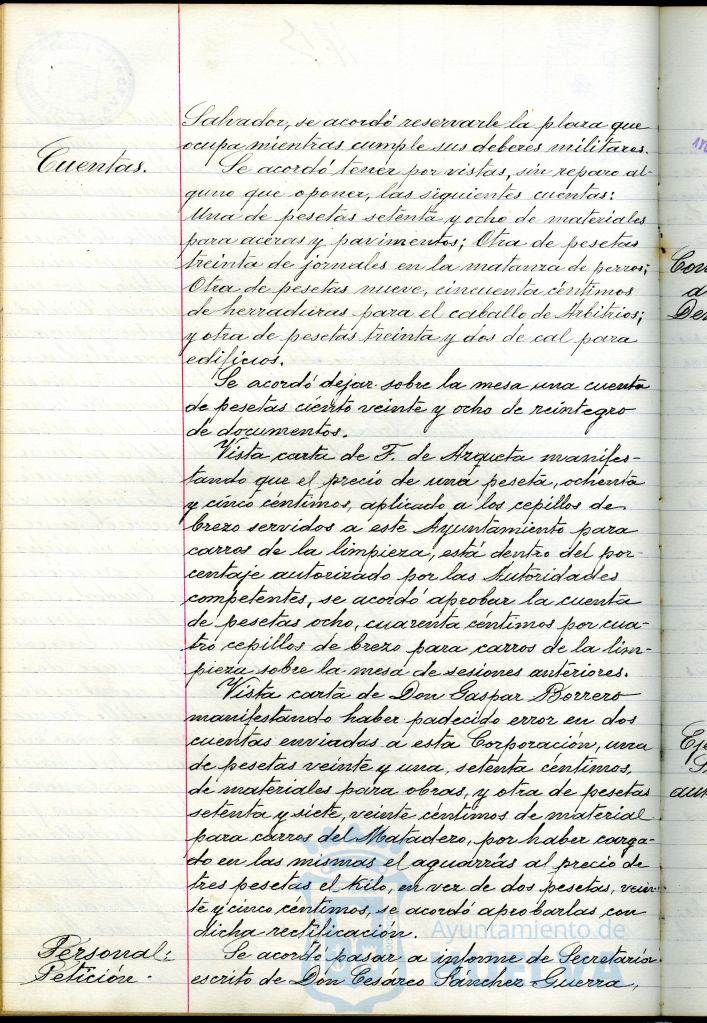 Salvador, se acordó reservarle la plaza que
ocupa mientras cumple sus deberes militares.
Cuentas.
Se acordó tener por vistas, sin reparo al-
guno que oponer, las siguientes cuentas:
Una de pesetas setenta y ocho de materiales
para aceras y pavimentos; Otra de pesetas
treinta de jornales en la matanza de perros;
Otra de pesetas nueve, cincuenta céntimos
de herraduras para el caballo de Arbitrios;
y otra de pesetas treinta y dos de cal para
edificios.
Se acordó dejar sobre la mesa una cuenta
de pesetas ciento veinte y ocho de reintegro
de documentos.
Vista carta de F. de Azqueta manifes-
tando que el precio de una peseta, ochenta
y cinco céntimos, aplicado a los cepillos de
brezo servidos a este Ayuntamiento para
carros de la limpieza, está dentro del por-
centaje autorizado por las Autoridades
competentes, se acordó aprobar la cuenta
de pesetas ocho, cuarenta céntimos por cua-
tro cepillos de brezo para carros de la lim-
pieza sobre la mesa de sesiones anteriores.
Vista carta de Don Gaspar Borrero
manifestando haber padecido error en dos
cuentas enviadas a esta Corporación, una
de pesetas veinte y una, setenta céntimos,
de materiales para obras, y otra de pesetas
setenta y siete, veinte céntimos de material
para carros del Matadero, por haber carga-
do en las mismas el aguarrás al precio de
tres pesetas el kilo, en vez de dos pesetas, vein-
te y cinco céntimos, se acordó aprobarlas con
dicha rectificación.
Personal:
Petición.
Se acordó pasar a informe de Secretaría
escrito de Don Cesáreo Sánchez-Guerra,
Ayuntamiento de
HUELVA